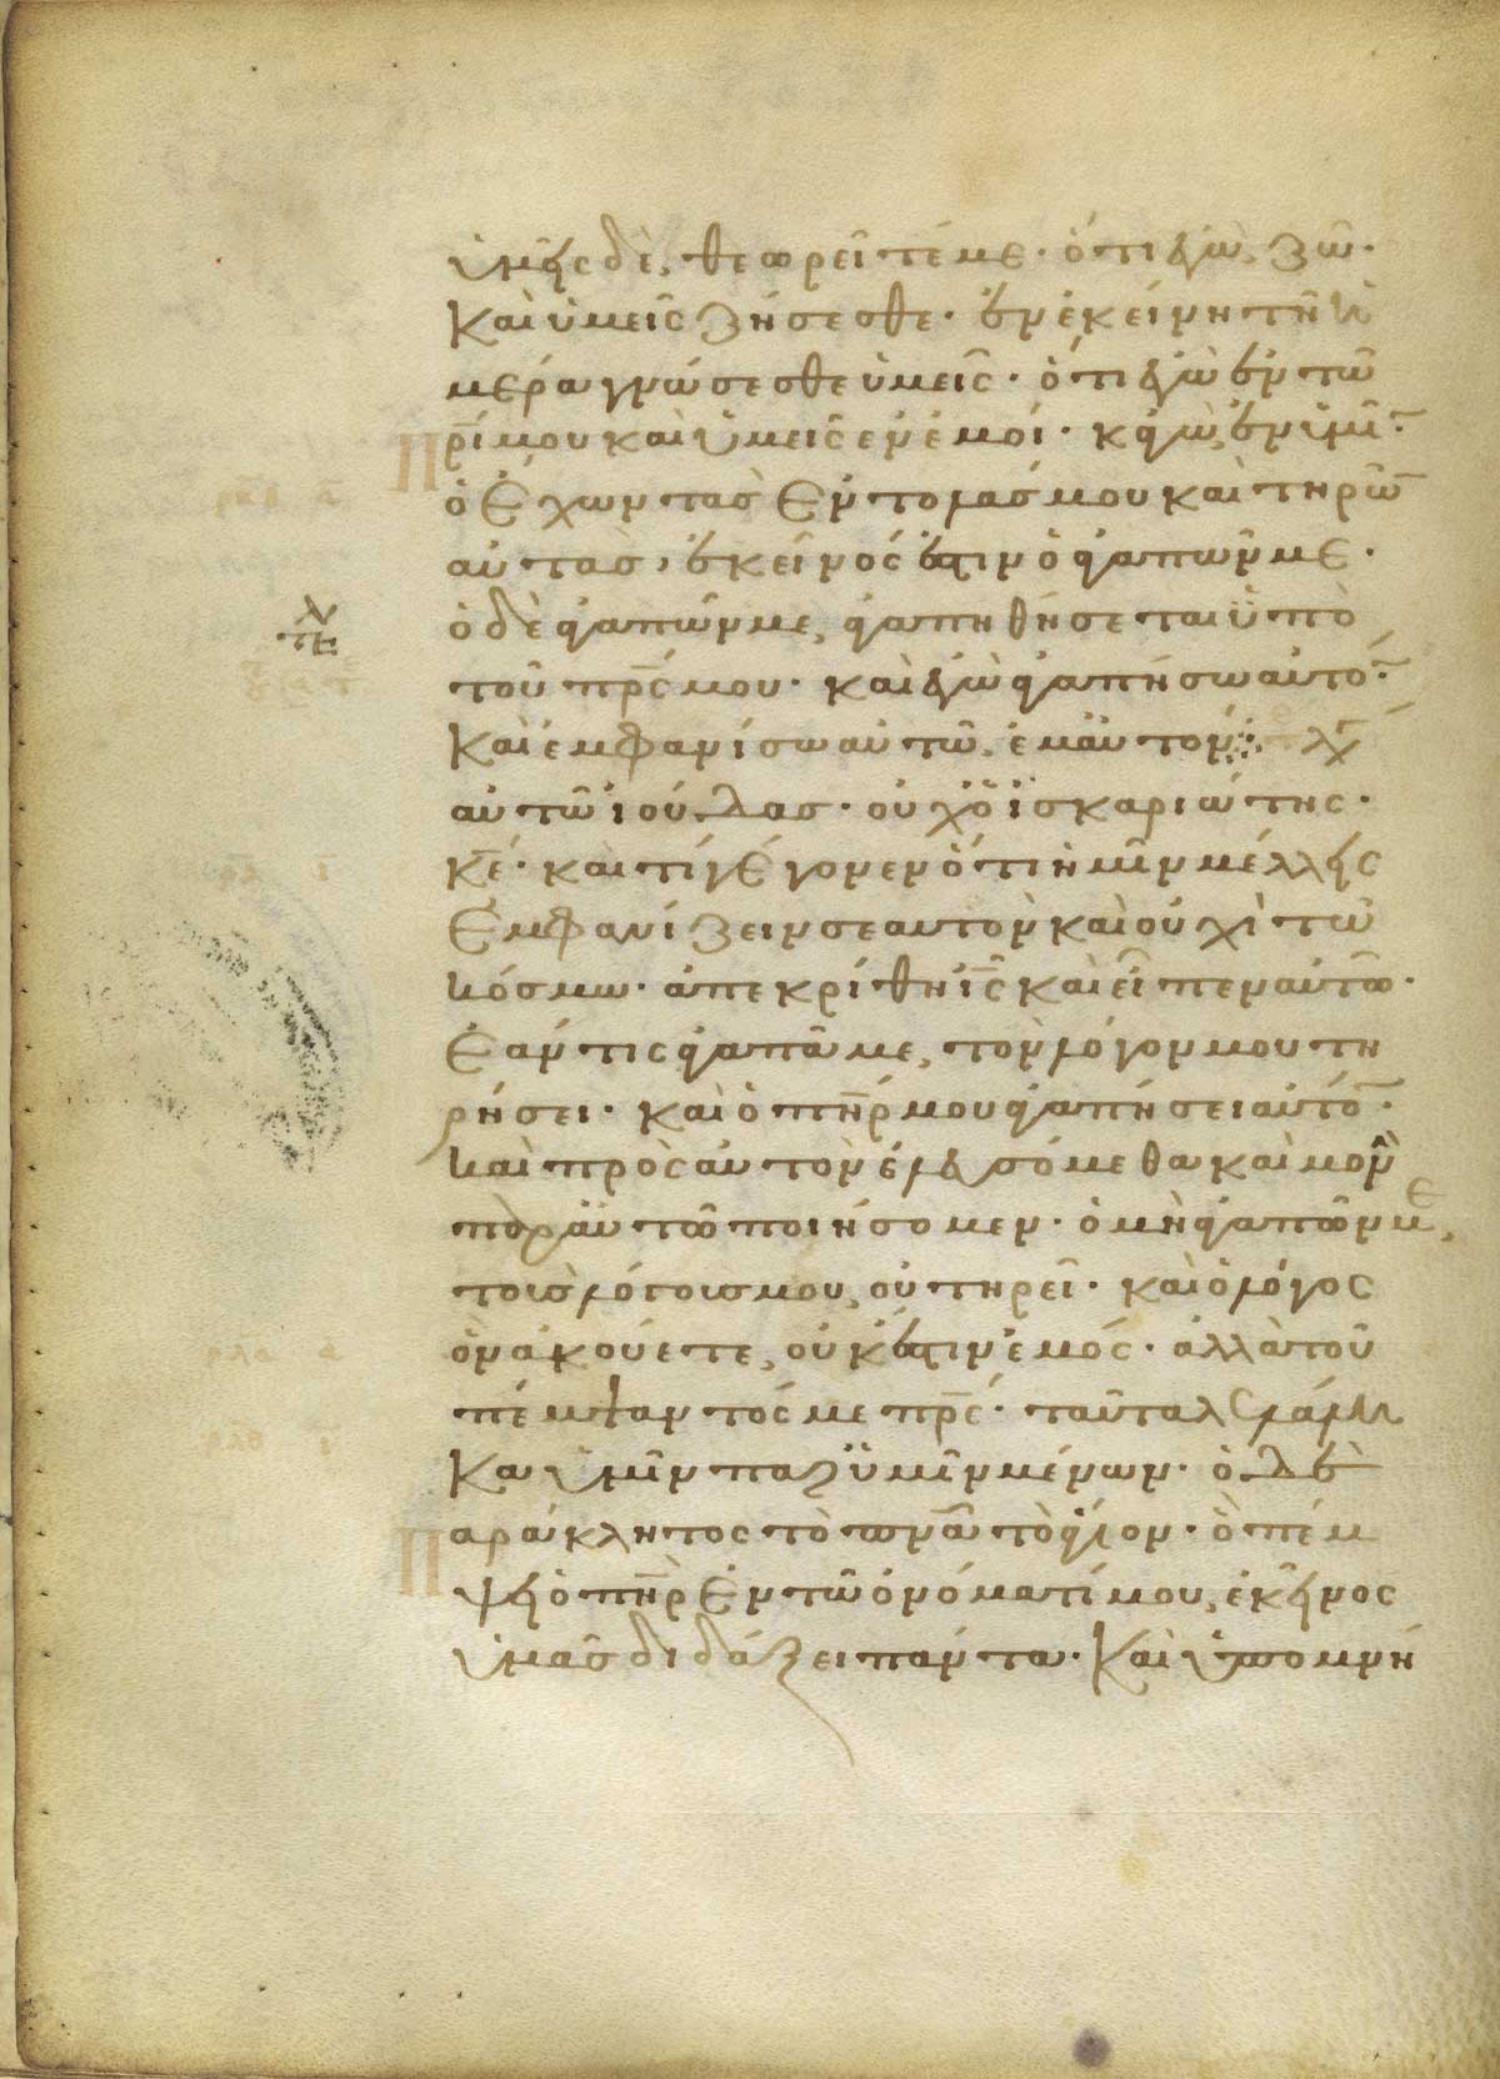 ὑμεῖς δὲ, θεωρεῖτέ με· ὅτι ἐγὼ, ζῶ·
καὶ ὑμεῖς ζήσεσθε· ἐν ἐκείνη τῆ ἡ
μέρα γνώσεσθε ὑμεῖς· ὅτι ἐγὼ ἐν τῶ
π̅ρ̅ί μου καὶ ὑμεῖς ἐν ἐμοί· κἀγὼ, ἐν ὑμῖ̅·
ὁ ἔχων τὰσ ἐντολάσ μου καὶ τηρῶ̅
αὐτὰσ, ἐκεῖνός ἐστιν ὁ ἀγαπῶν με·
ὁ δὲ ἀγαπῶν με, ἀγαπηθήσεται ὑπὸ
τοῦ π̅ρ̅ς μου· καὶ ἐγὼ ἀγαπήσω αὐτό̅·
καὶ ἐμφανίσω αὐτῶ, ἐμαυτόν· λγ
αὐτῶ ἰούδασ· οὐχ ὁ ἰσκαριώτης·
κ̅ε̅· καὶ τί γέγονεν ὅτι ἡμῖν μέλλεις
ἐμφανίζειν σεαυτὸν καὶ οὐχὶ τῶ
κόσμω· ἀπεκρίθη ι̅ς̅ καὶ εἶπεν αὐτῶ·
ἐάν τις ἀγαπᾶ με, τὸν λόγον μου τη
ρήσει· καὶ ὁ π̅η̅ρ̅ μου ἀγαπήσει αὐτό̅·
καὶ πρὸς αὐτὸν ἐλευσόμεθα καὶ μονὴ̅
παρ' αὐτῶ ποιήσομεν· ὁ μὴ ἀγαπῶν με,
τοὺσ λόγουσ μου, οὐ τηρεῖ· καὶ ὁ λόγος
ὃν ἀκούετε, οὐκ ἔστιν ἐμός· ἀλλὰ τοῦ
πέμψαντός με π̅ρ̅ς· ταῦτα λελάλη
κα ὑμῖν παρ' ὑμῖν μένων· ὁ δὲ
Π αράκλητος τὸ π̅ν̅α̅ τὸ ἅγιον· ὃ πέμ
ψει ὁ π̅η̅ρ̅ ἐν τῶ ὀνόματί μου, ἐκεῖνος
ὑμᾶσ διδάξει πάντα· καὶ ὑπομνή